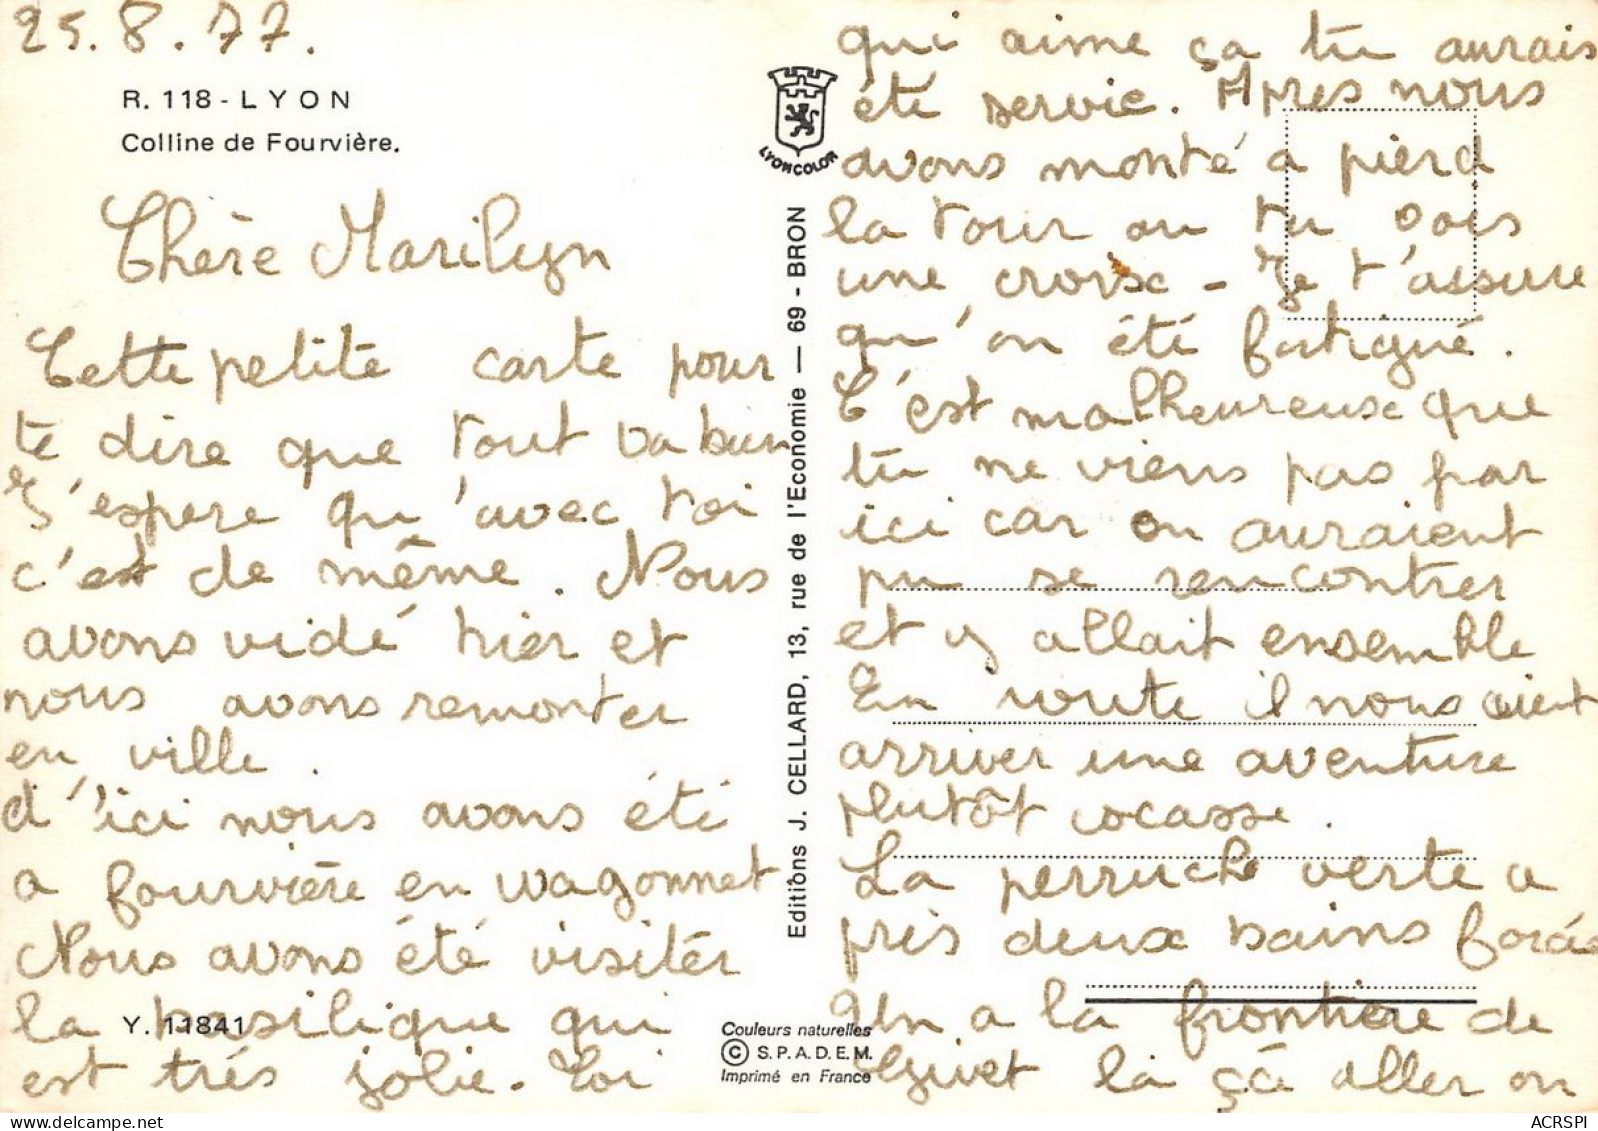 25.8.77.
R. 118 - LYON
Colline de Fourvière.
Chère Marilyn
Cette petite carte pour
te dire que tout va bien
J'espere qu'avec toi
c'est de même. Nous
avons vidé hier et
nous avons remonter
en ville.
d'ici nous avons été
a fourvière en wagonnet
Nous avons été visiter
la basilique qui
est trés jolie. Toi
Y. 11841
LYONCOLOR
Editions J. CELLARD, 13, rue de l'Economie — 69 - BRON
Couleurs naturelles
© S.P.A.D.E.M.
Imprimé en France
qui aime ça tu aurais
été servie. Apres nous
avons monté a pierd
la tour ou tu vois
une croix - Je t'assure
qu'on été fatigué.
C'est malheureux que
tu ne viens pas par
ici car on auraient
pu se rencontrer
et y allait ensemble
En route il nous aient
arriver une aventure
plutôt cocasse.
La perruche verte a
pris deux bains forcés
Un a la frontière de
Givet là ça aller on
ACRSPI